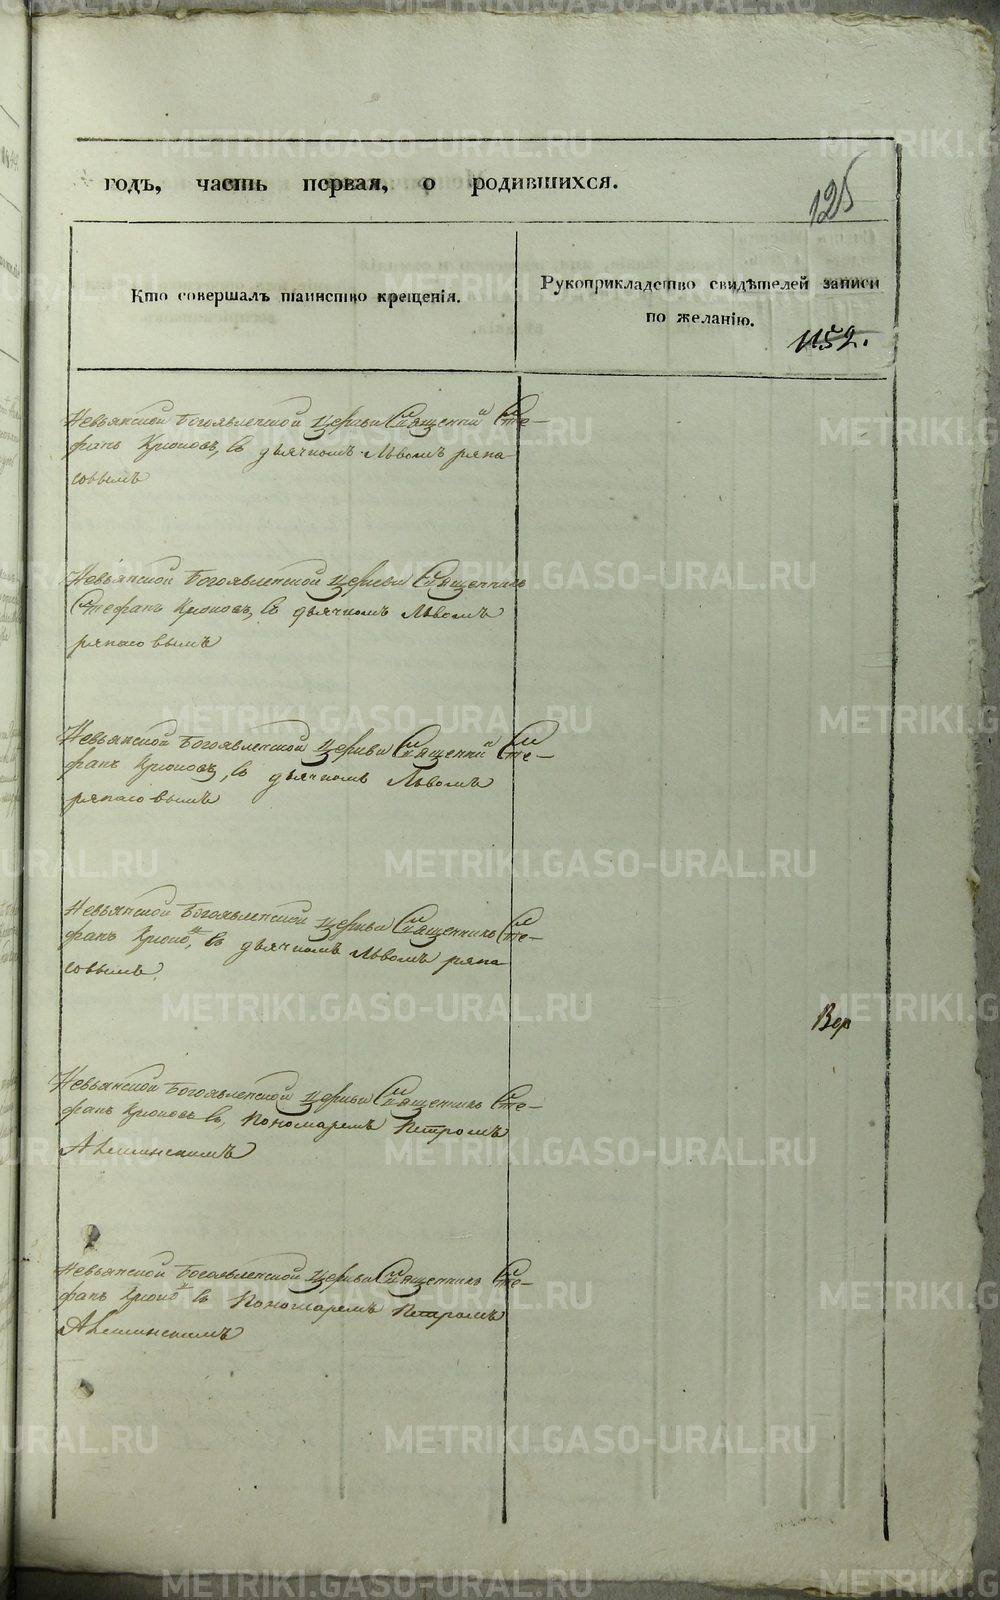 годъ, часть первая, о родившихся.
125
Кто совершалъ таинство крещенія.
Рукоприкладство свидѣтелей записи
по желанію.
1152.
Невьянской Богоявленской церкви Священий Сте-
фанъ Кріоковъ, съ дьячкомъ Львомъ ряпа
совымъ
Невьянской Богоявленской церкви Священникъ
Стефанъ Кріоковъ, съ дьячкомъ Львомъ
ряпасовымъ
Невьянской Богоявленской церкви Священий Сте-
фанъ Кріоковъ, съ дьячкомъ Львомъ
ряпасовымъ
Невьянской Богоявленской церкви Священникъ Сте-
фанъ съ дьячкомъ Львомъ ряпа
совымъ.
Вер
Невьянской Богоявленской церкви Священникъ Сте-
фанъ Кріоковъ съ, Пономаремъ Петромъ
Невьянской Богоявленской церкви Священникъ Сте-
фанъ съ Пономаремъ Петромъ
METRIKI.GASO-URAL.RU